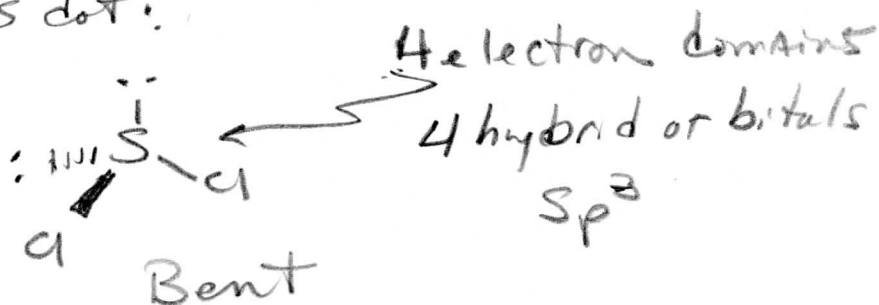 s dot:
4 electron domains
4 hybrid orbitals
sp³
S
Cl
Cl
Bent